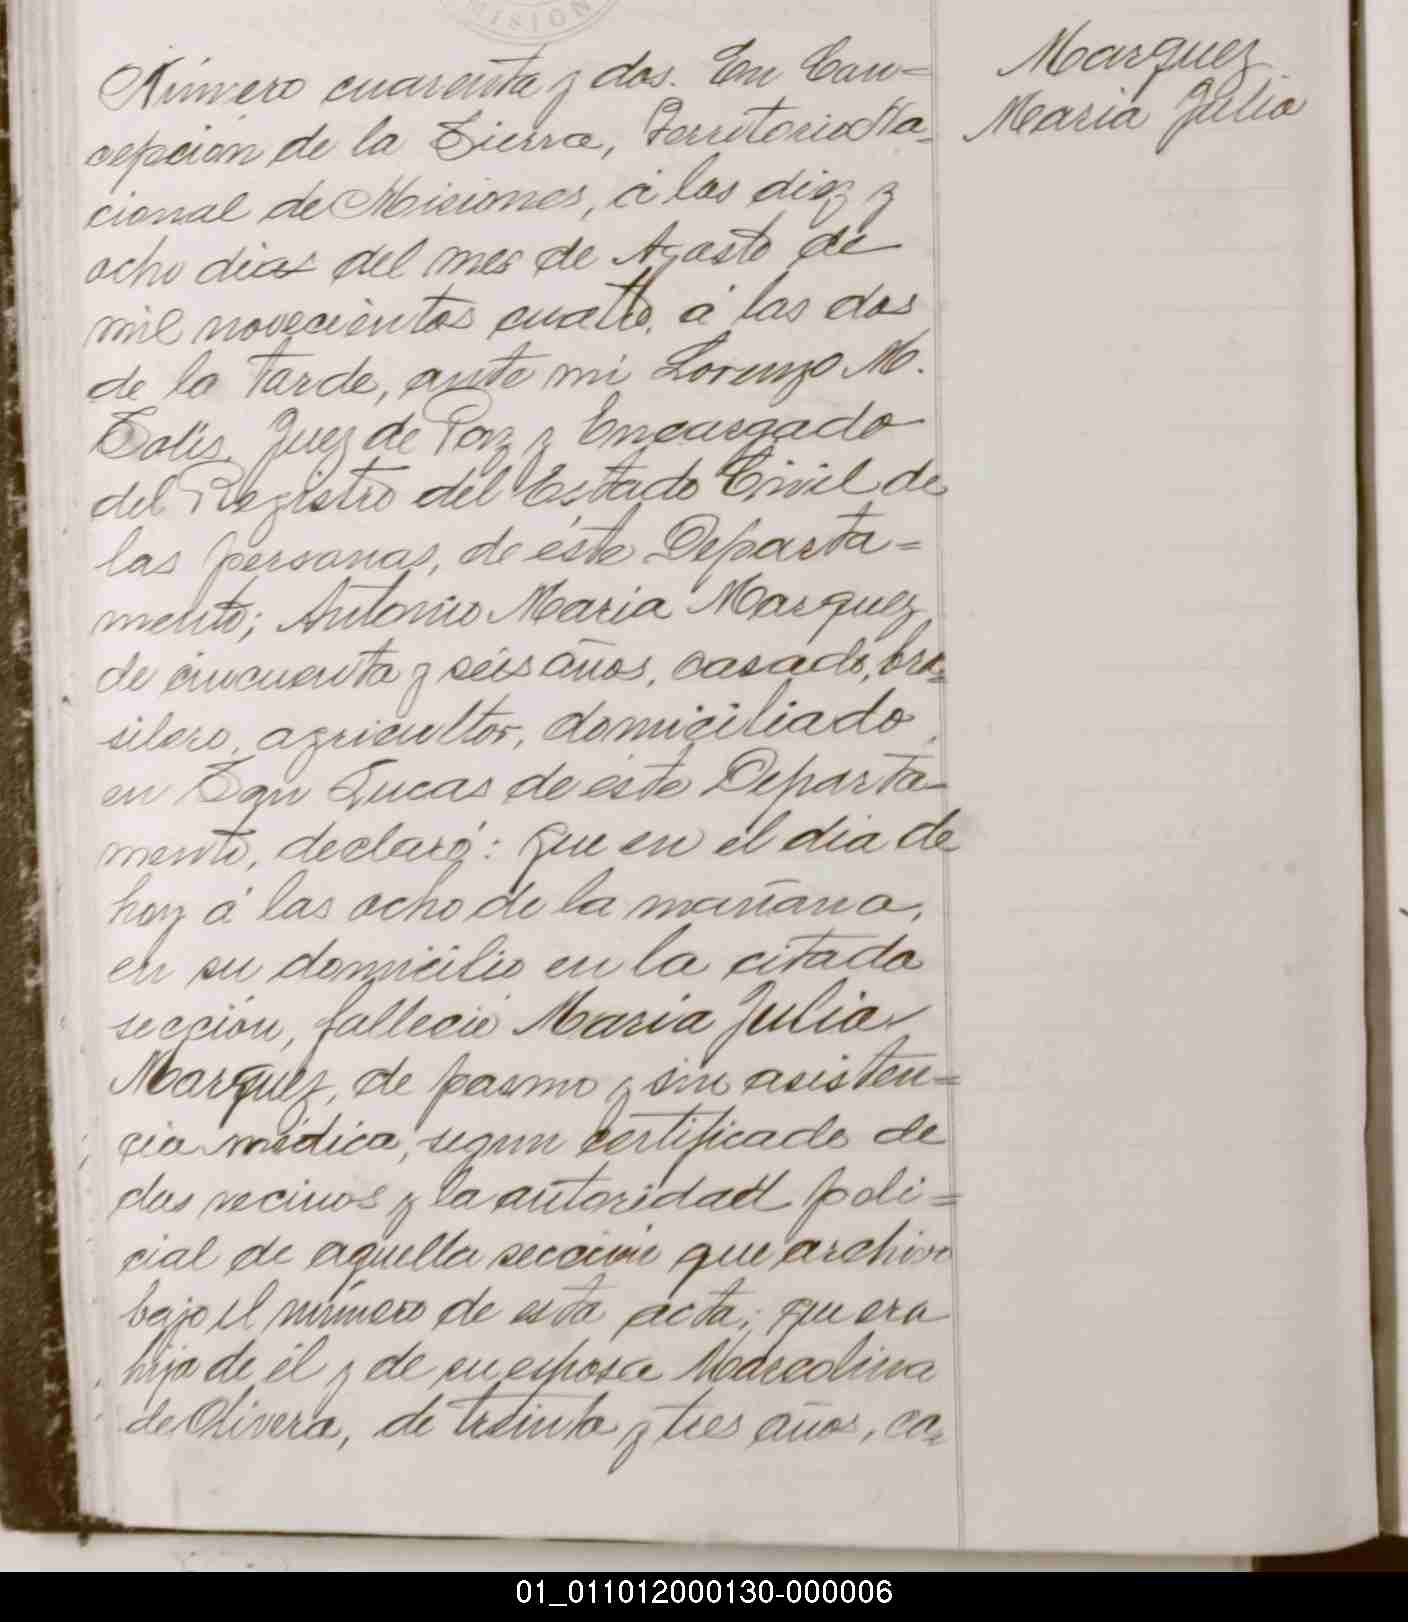 MISION
Número cuarenta y dos. En Con=
cepción de la Sierra, Territorio Na=
cional de Misiones, á los diez y
ocho dias del mes de Agosto de
mil novecientos cuatro, á las dos
de la tarde, ante mi Lorenzo M.
Solis, Juez de Paz y Encargado
del Registro del Estado Civil de
las personas, de éste Departa=
mento; Antonio Maria Marquez,
de cincuenta y seis años, casado, bra=
silero, agricultor, domiciliado
en San Lucas de éste Departa=
mento, declaró: que en el dia de
hoy á las ocho de la mañana,
en su domicilio en la citada
sección, falleció Maria Julia
Marquez, de pasmo y sin asisten=
cia médica, segun certificado de
dos vecinos y la autoridad poli=
cial de aquella sección que archivo
bajo el número de esta acta; que era
hija de él y de su esposa Marcolina
de Olivera, de treinta y tres años, ca=
Marquez
Maria Julia
01_011012000130-000006